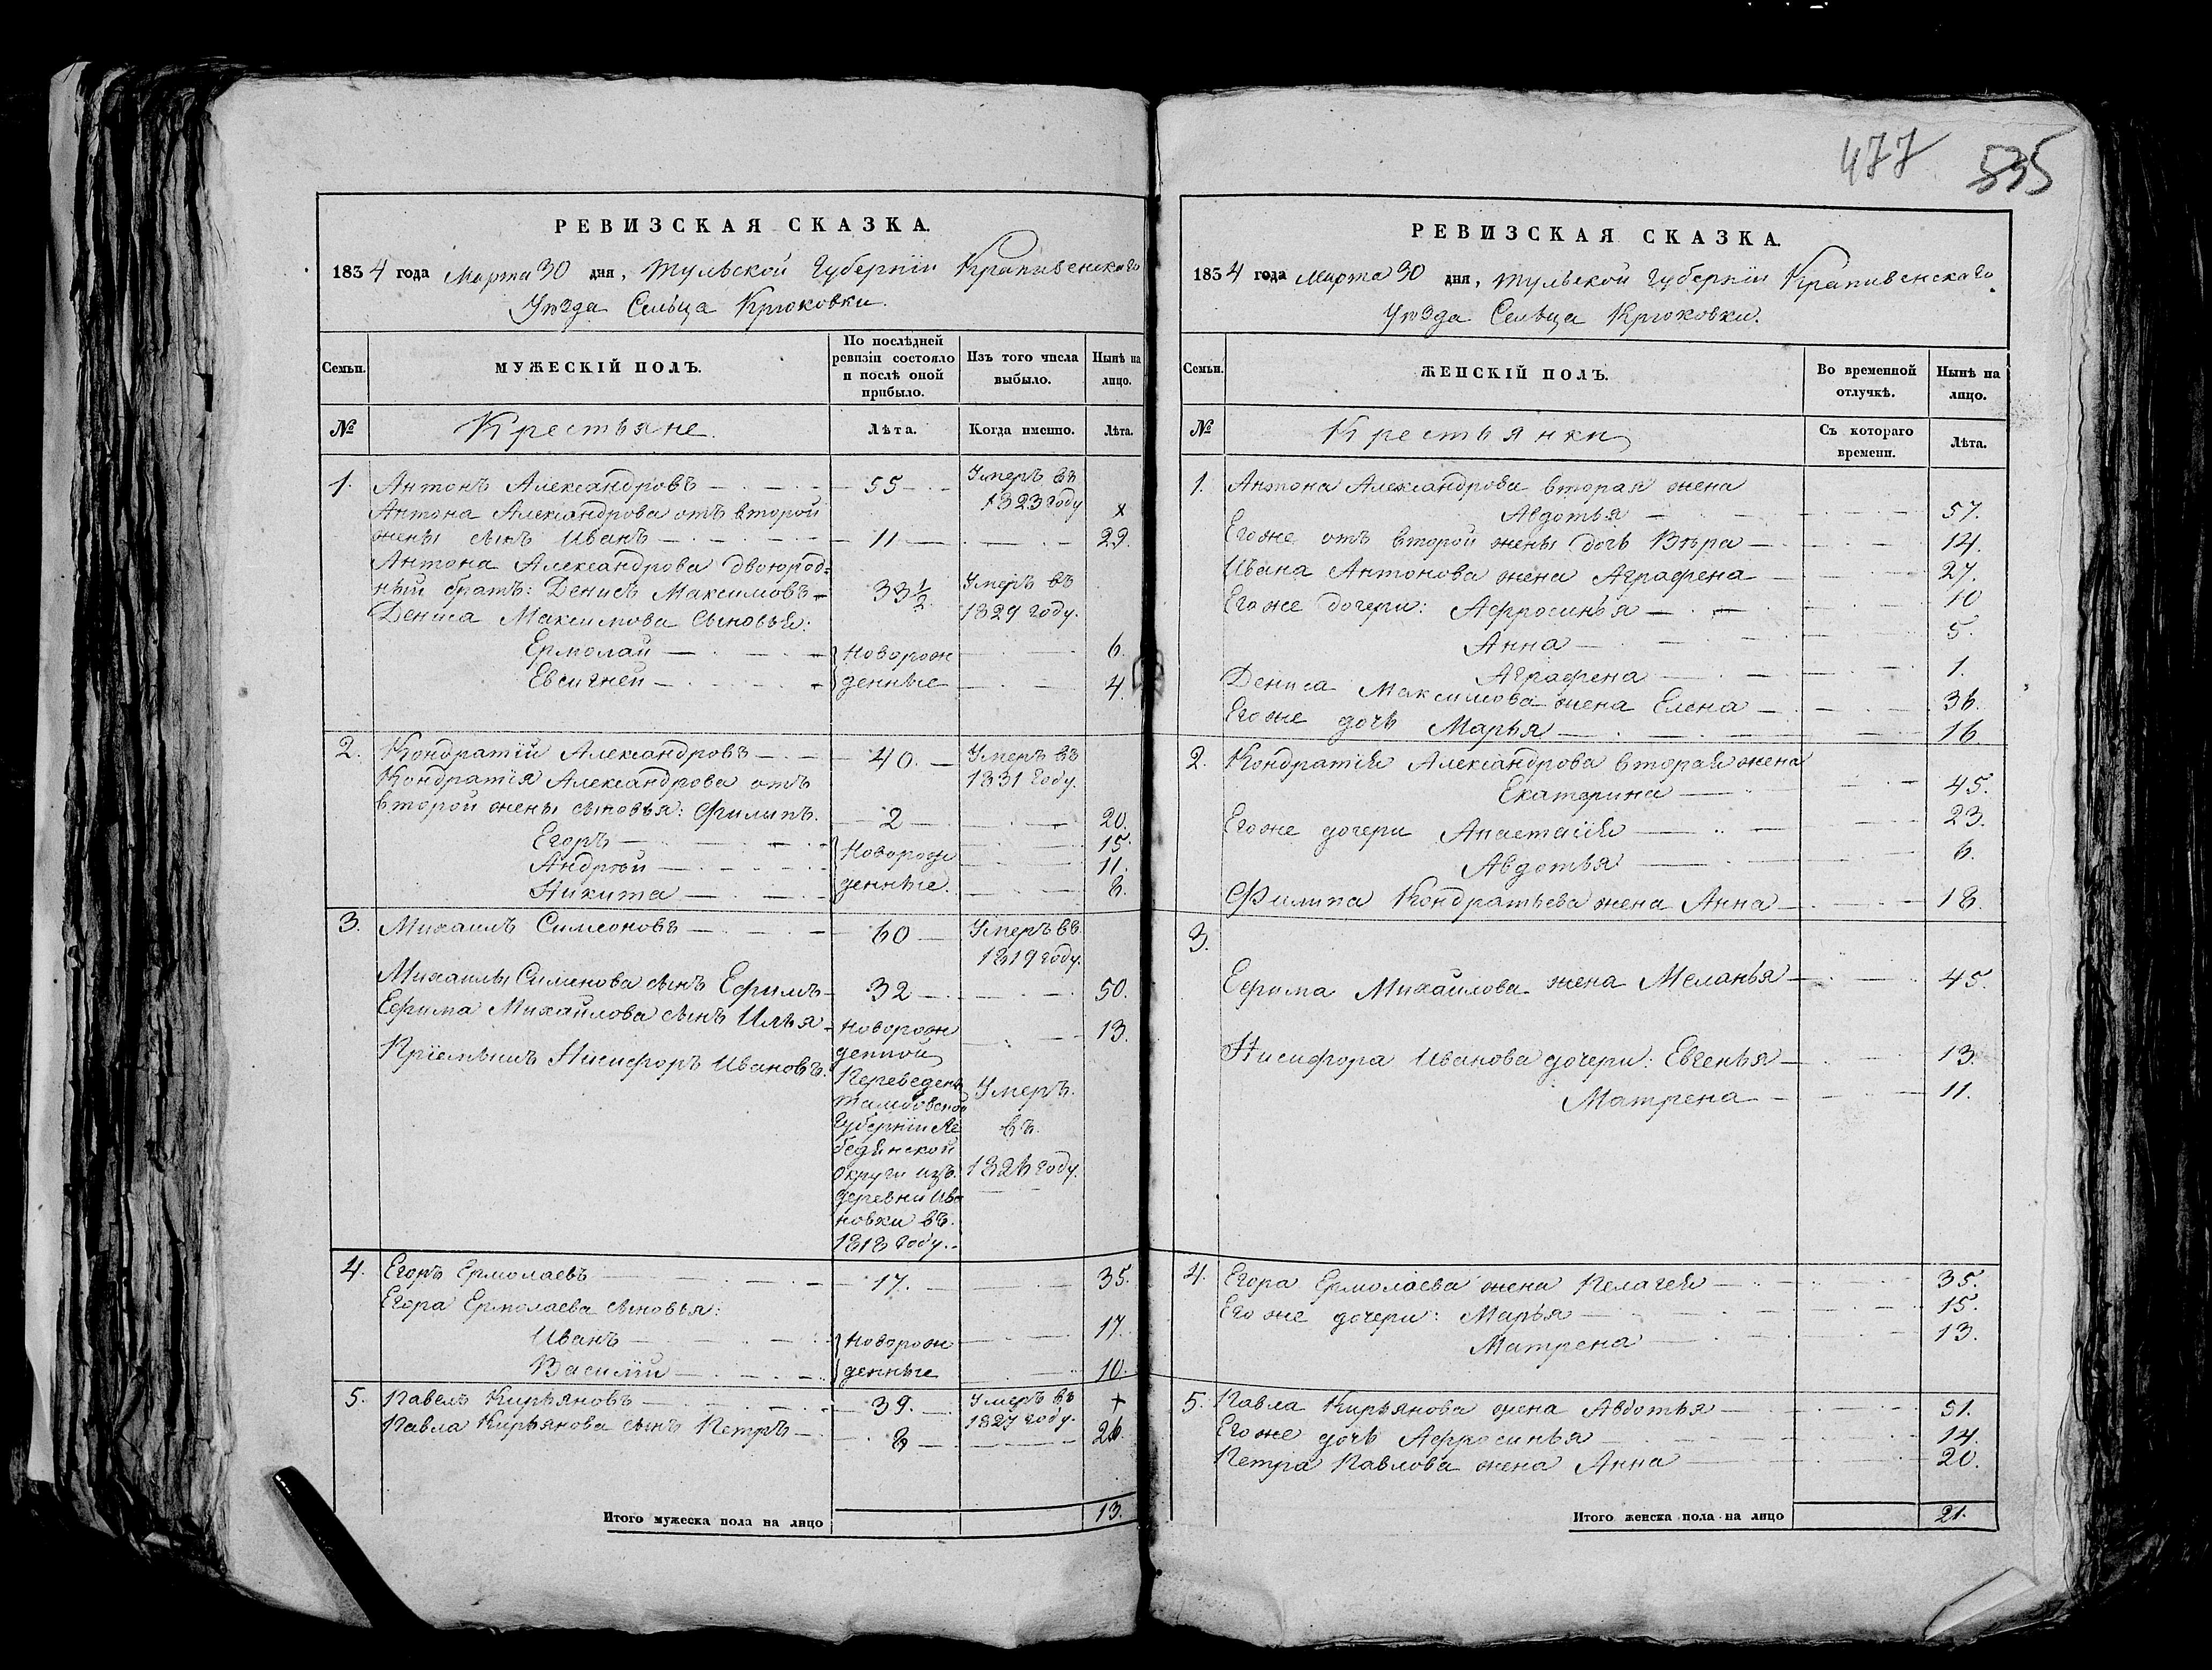 РЕВИЗСКАЯ СКАЗКА.
1834 года Марта 30 дня, Тульской Губерніи Крапивенскаго
Уѣзда Сельца Крюковки.
Семьи. МУЖЕСКІЙ ПОЛЪ. По послѣдней ревизіи состояло и послѣ оной прибыло. Изъ того числа выбыло. Нынѣ на лицо.
№ Крестьяне. Лѣта. Когда именно. Лѣта.
1. Антонъ Александровъ 55 Умеръ въ 1823 году x
Антона Александрова отъ второй
жены сынъ Иванъ 11 29.
Антона Александрова двоюрод-
ный братъ: Денисъ Максимовъ 33 1/2. Умеръ въ 1829 году.
Дениса Максимова сыновья:
Ермолай Новорож 6.
Евсигней денные 4.
2. Кондратій Александровъ 40. Умеръ въ 1831 году.
Кондратія Александрова отъ
второй жены сыновья: Филипъ. 2 20.
Егоръ 15.
Андрѣй Новорож 11.
Никита денные. 8.
3. Михаилъ Симеоновъ 60 Умеръ въ 1819 году.
Михаилы Симинова сынъ Ефимъ 32 50.
Ефима Михайлова сынъ Илья Новорож 13.
денной
Пріемышъ Никифоръ Ивановъ. Переведенъ Умеръ.
Тамбовской
Губерніи Ле въ
бедянской
округи изъ 1826 году.
деревни Ива
новки въ.
1818 году.
4. Егоръ Ермолаевъ 17. 35.
Егора Ермолаева сыновья:
Иванъ Новорож 17.
Василій денные 10.
5. Павелъ Кирьяновъ 39. Умеръ въ 1827 году. +
Павла Кирьянова сынъ Петръ 8 26.
Итого мужеска пола на лицо 13.
477 535
РЕВИЗСКАЯ СКАЗКА.
1834 года Марта 30 дня, Тульской Губерніи Крапивенскаго
Уѣзда Сельца Крюковки.
Семьи. ЖЕНСКІЙ ПОЛЪ. Во временной отлучкѣ. Нынѣ на лицо.
№ Крестьянки Съ котораго времени. Лѣта.
1. Антона Александрова вторая жена
Авдотья 57.
Егоже отъ второй жены дочь Вѣра 14.
Ивана Антонова жена Аграфена 27.
Егоже дочери: Афросинья 10
Анна 5.
Аграфена 1.
Дениса Максимова жена Елена 36.
Егоже дочь Марья 16
2. Кондратія Александрова вторая жена
Екатерина 45.
Егоже дочери Анастасія 23.
Авдотья 6.
Филипа Кондратьева жена Анна 18.
3.
Ефима Михайлова жена Меланья 45.
Никифора Иванова дочери: Евгенья 13.
Матрена 11.
4. Егора Ермолаева жена Пелагея 35.
Егоже дочери: Марья 15.
Матрена 13.
5. Павла Кирьянова жена Авдотья 51.
Егоже дочь Афросинья 14.
Петра Павлова жена Анна 20.
Итого женска пола на лицо 21.